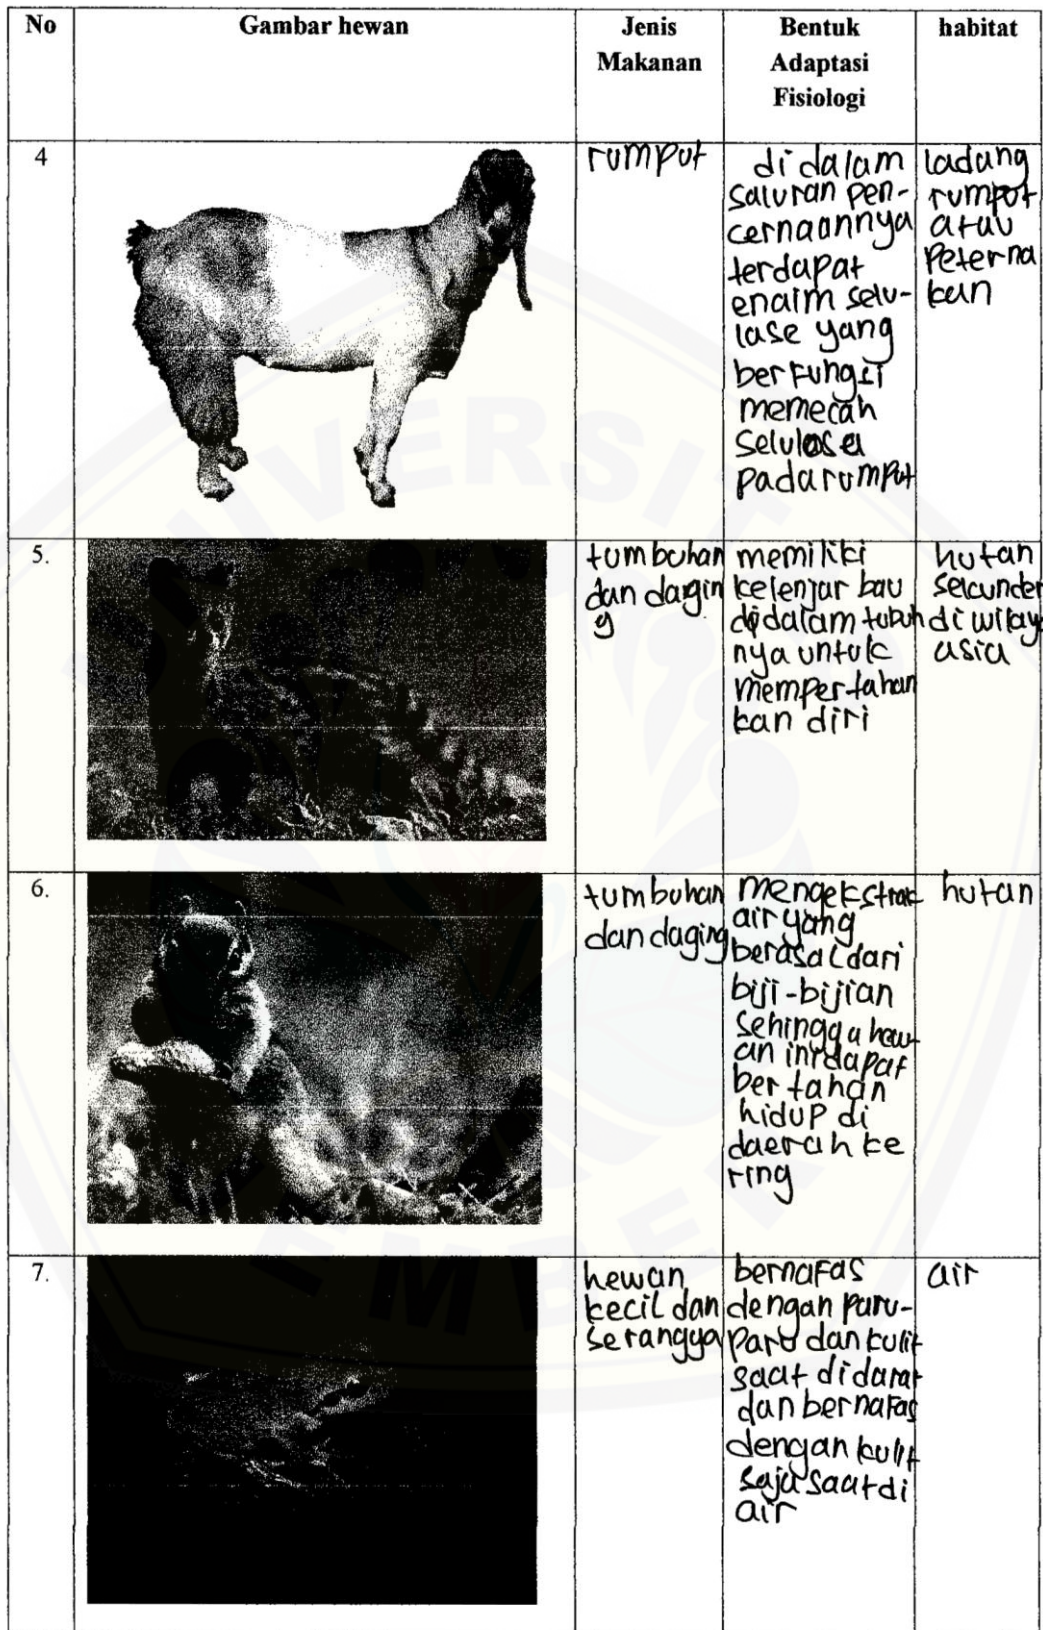 No Gambar hewan Jenis Makanan Bentuk Adaptasi Fisiologi habitat
4
rumput
di dalam
saluran pen-
cernaannya
terdapat
enaim selu-
lase yang
berfungsi
memecah
selulosa
pada rumput
ladang
rumput
atau
Peterna
kan
5.
tumbuhan
dan dagin
g
memiliki
kelenjar bau
didalam tubuh
nya untuk
mempertahan
kan diri
hutan
sekunder
di wilay
asia
6.
tumbuhan
dan daging
mengekstrak
air yang
berasal dari
biji-bijian
sehingga hew
an ini dapat
bertahan
hidup di
daerah ke
ring
hutan
7.
hewan
kecil dan
serangga
bernafas
dengan paru-
paru dan kulit
saat di darat
dan bernafas
dengan kulit
saja saat di
air
air
UNIVERSITAS
JEMBER